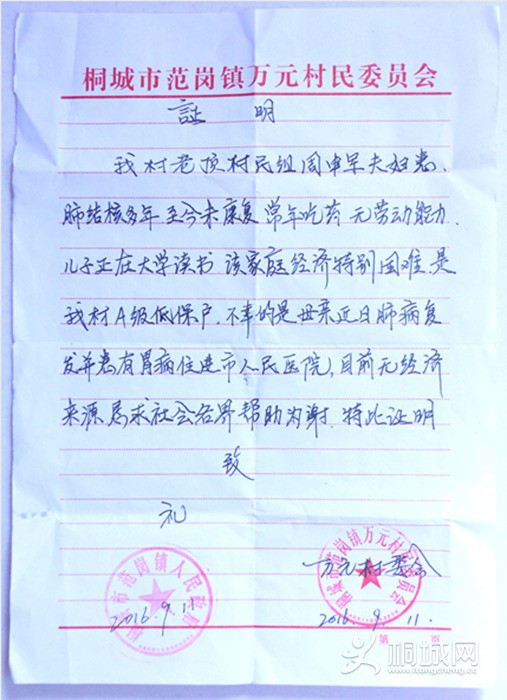 桐城市范岗镇万元村民委员会
证 明
我村老陈村民组周申早夫妇患
肺结核多年 至今未康复 常年吃药 无劳动能力
儿子正在大学读书 该家庭经济特别困难 是
我村A级低保户.不幸的是母亲近日肺病复
发并患有胃病住进市人民医院,目前无经济
来源 恳求社会各界帮助为谢.特此证明
致
礼
桐城市范岗镇人民政府
2016.9.11
桐城市范岗镇万元村民委员会
万元村委会
2016.9.11.
第 页
桐城网